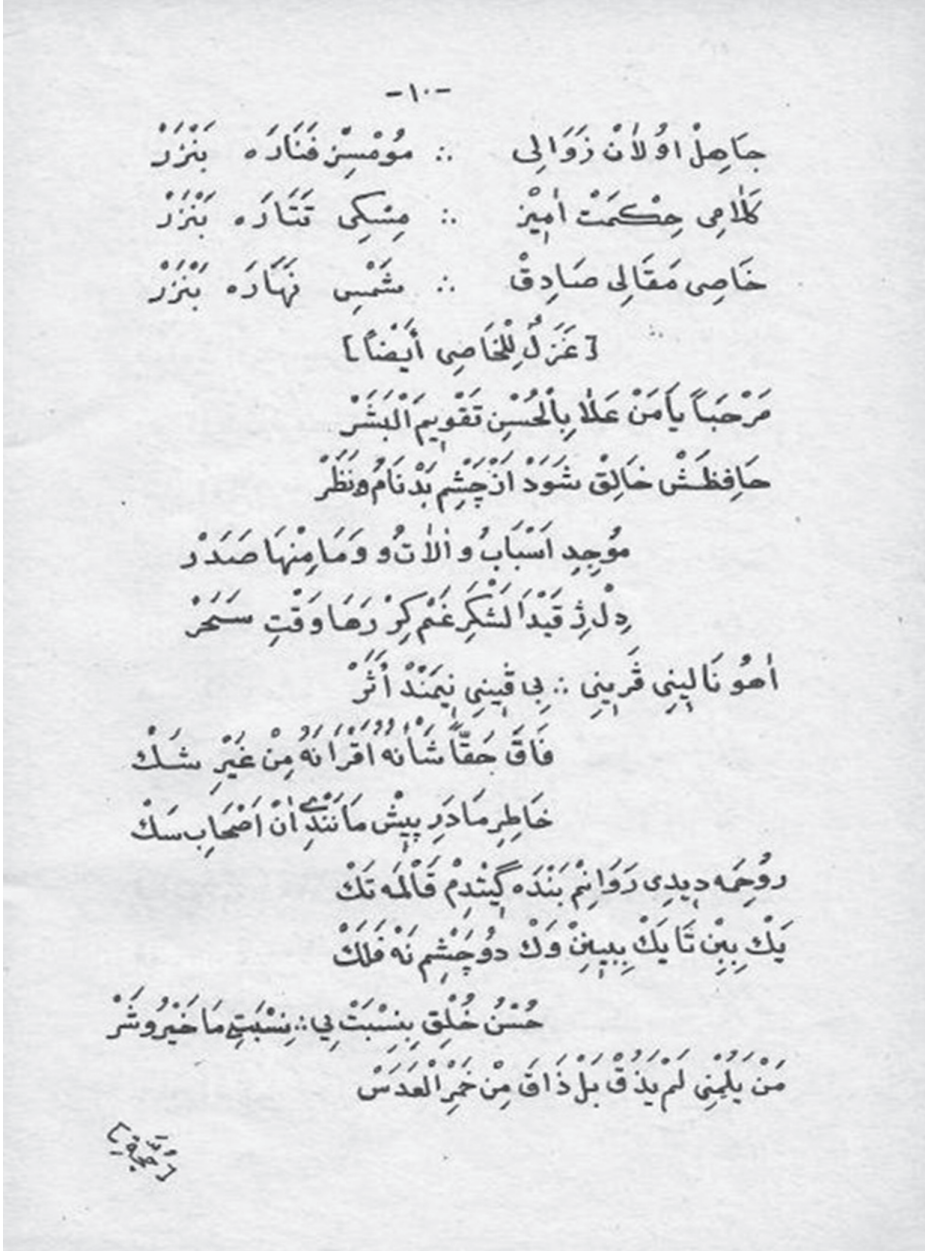 -١٠-
جَاهِلْ اوُلَانْ زَوَالِى ∴ مُومْسِزْ فَنَارَه بَنْزَرْ
كَلَامِى حِكْمَتْ اٰمِيْز ∴ مِسْكِى تَتَارَه بَنْزَرْ
خَاصِى مَقَالِى صَادِقْ ∴ شَمْسِ نَهَارَه بَنْزَرْ
[غَزَلٌ لِلْخَاصِى أَيْضاً]
مَرْحَباً يَا مَنْ عَلَا بِالْحُسْنِ تَقْوِيمَ الْبَشَرْ
حَافِظَشْ خَالِقْ شَوَدْ اَزْ چَشْمِ بَدْ نَامُ ونَظَرْ
مُوجِدِ اَسْبَابُ و اٰلَاتُ و وَمَا مِنْهَا صَدَرْ
دِلْ ژِ قَيْدَا لَشْكَرِ غَمْ كِرْ رَهَا وَقْتِ سَحَرْ
اٰهُو نَالِينِى قَرِينِى ∴ بِى قِينِى نِيمَنْدْ اَثَرْ
فَاقَ حَقّاً شَأْنُهُ اَقْرَانَهُ مِنْ غَيْرِ شَكْ
خَاطِرِ مَا دَرِ پِيشْ مَانَنْدِ اٰنْ اَصْحَابِ سَكْ
روُحِمَه دِيدِى رَوَانِمْ بَنْدَه گِيتْدِمْ قَالْمَه تَكْ
يَكْ بِبِين تَا يَكْ بِبِينِنْ وَكْ دوُ چَشْمِ نَهْ فَلَكْ
حُسْنُ خُلْقِ بِنِسْبَتْ بِي ∴ نِسْبَتِ مَا خَيْرُ وشَرْ
مَنْ يَلُمْنِى لَمْ يَذُقْ بَلْ ذَاقَ مِنْ خَمْرِ الْعَدَسْ